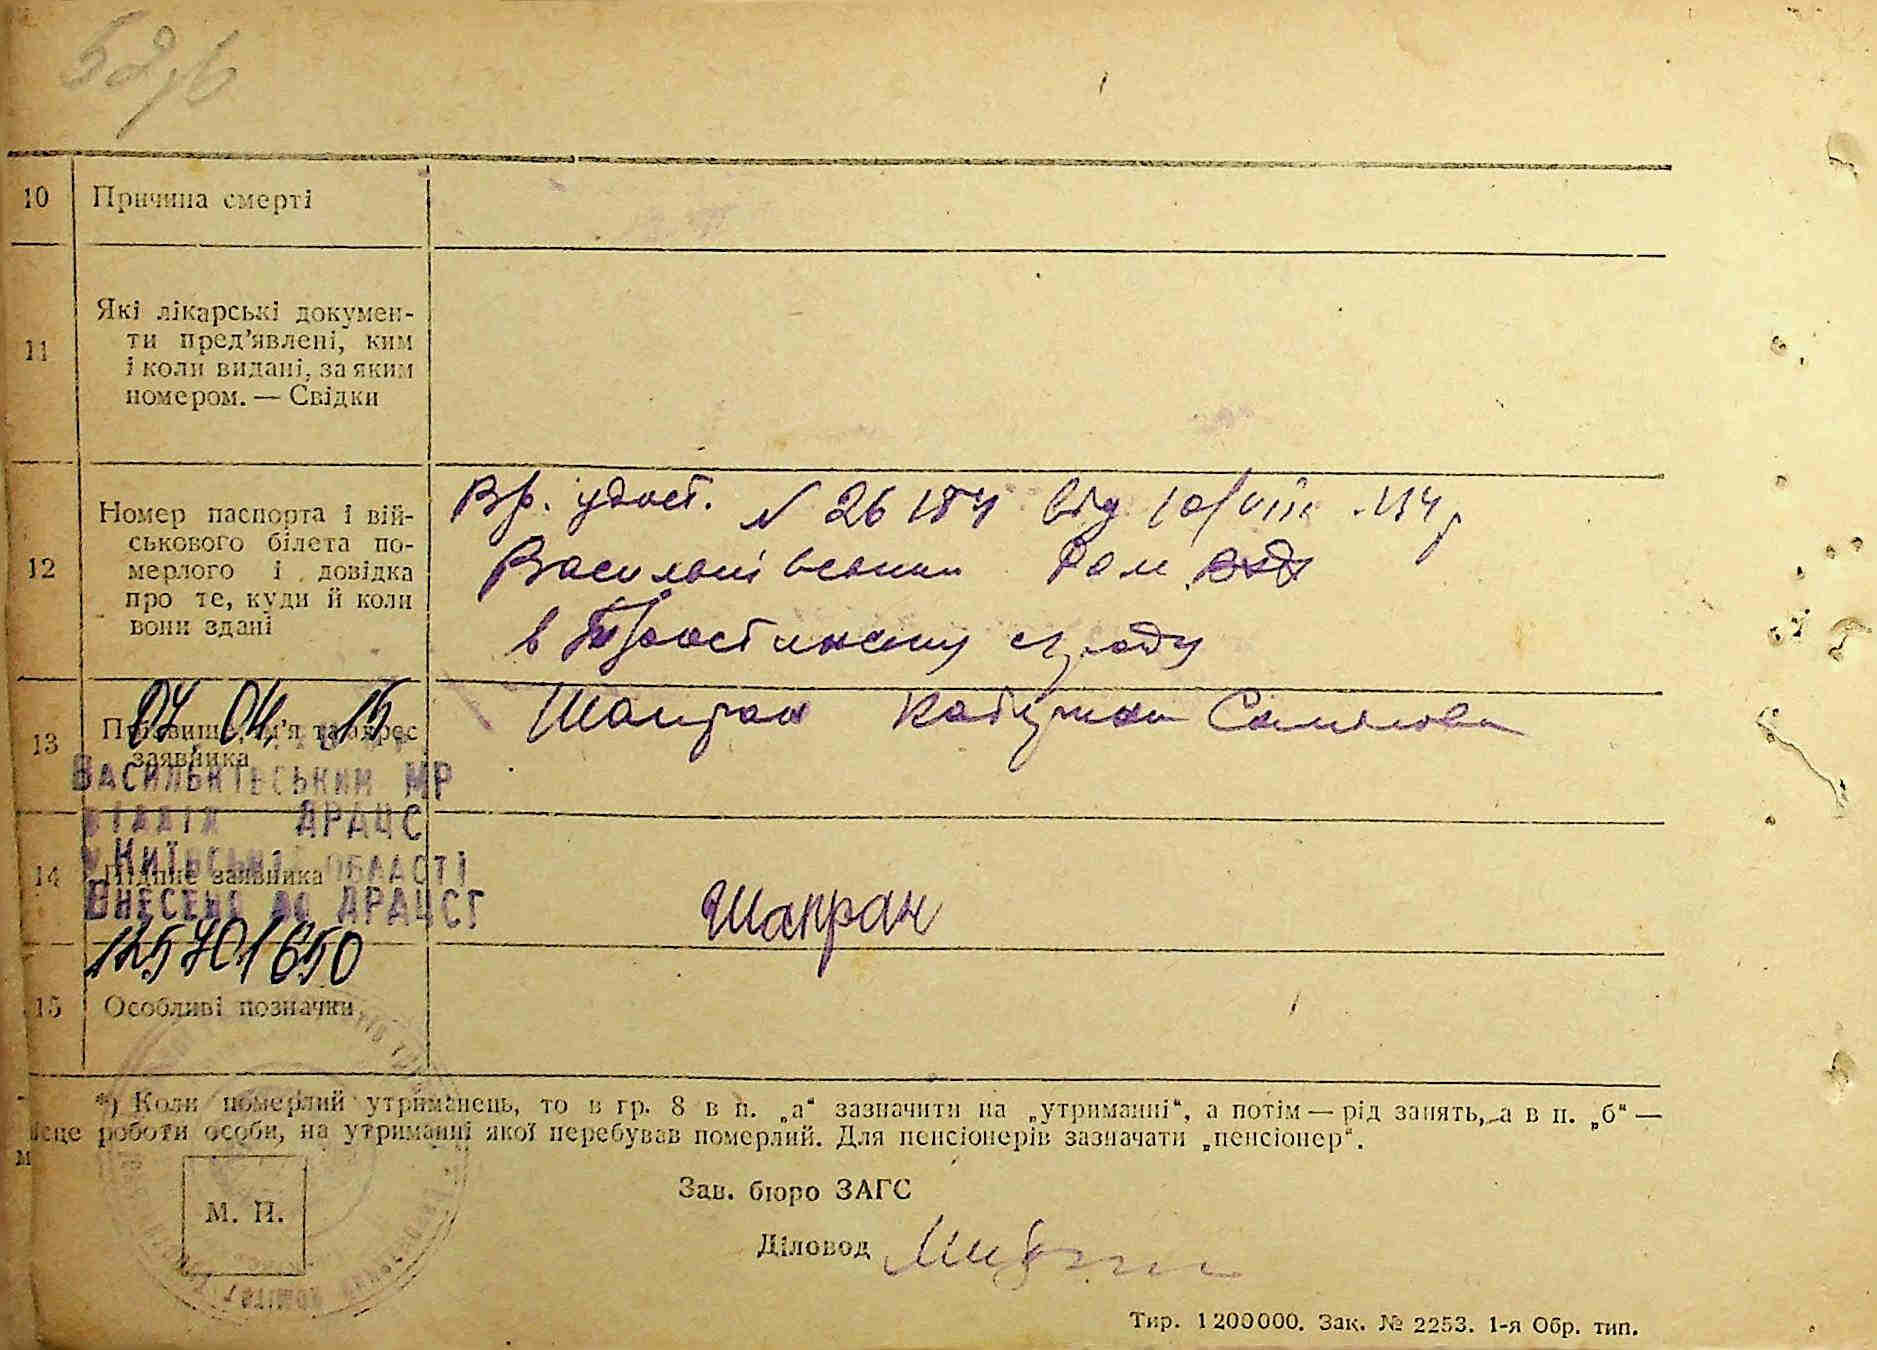 10 Причина смерті
11 Які лікарські докумен-
ти пред’явлені, ким
і коли видані, за яким
номером. — Свідки
12 Номер паспорта і вій-
ськового білета по-
мерлого і довідка
про те, куди й коли
вони здані
Вр. удост. № 26184 від 10/VIII
в
07. 04. 15
13 Прізвище, ім’я та адрес
заявника
Шапран Самiлова
Васильківський МР
відділ ДРАЦС
у Київській області
14 Підпис заявника
Шапран
Внесено до ДРАЦСГ
125701650
15 Особливі позначки
*) Коли померлий утриманець, то в гр. 8 в п. „а“ зазначити на „утриманні“, а потім — рід занять, а в п. „б“ —
місце роботи особи, на утриманні якої перебував померлий. Для пенсіонерів зазначати „пенсіонер“.
М. П.
Зав. бюро ЗАГС
Діловод
Тир. 1200000. Зак. № 2253. 1-я Обр. тип.